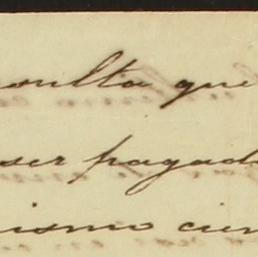 sulta que
ser pagad
ismo cin